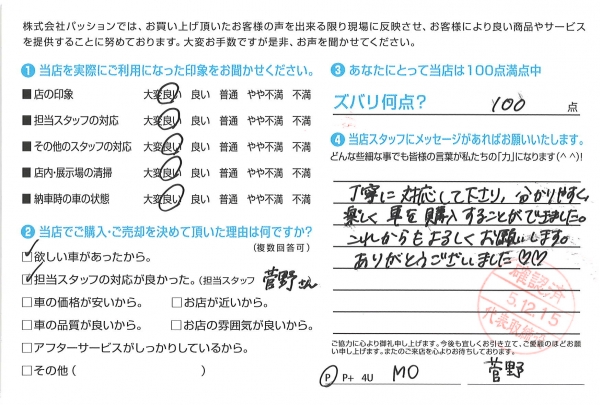 株式会社パッションでは、お買い上げ頂いたお客様の声を出来る限り現場に反映させ、お客様により良い商品やサービス
を提供することに努めております。大変お手数ですが是非、お声を聞かせてください。
❶ 当店を実際にご利用になった印象をお聞かせください。
■ 店の印象 大変良い 良い 普通 やや不満 不満
■ 担当スタッフの対応 大変良い 良い 普通 やや不満 不満
■ その他のスタッフの対応 大変良い 良い 普通 やや不満 不満
■ 店内・展示場の清掃 大変良い 良い 普通 やや不満 不満
■ 納車時の車の状態 大変良い 良い 普通 やや不満 不満
❷ 当店でご購入・ご売却を決めて頂いた理由は何ですか?
(複数回答可)
☑欲しい車があったから。
☑担当スタッフの対応が良かった。(担当スタッフ 菅野さん
□車の価格が安いから。 □お店が近いから。
□車の品質が良いから。 □お店の雰囲気が良いから。
□アフターサービスがしっかりしているから。
□その他 ( )
❸ あなたにとって当店は100点満点中
ズバリ何点? 100 点
❹ 当店スタッフにメッセージがあればお願いいたします。
どんな些細な事でも皆様の言葉が私たちの「力」になります(^^)!
丁寧に対応して下さり、分かりやすく、
楽しく車を購入することができました。
これからもよろしくお願いします。
ありがとうございました♡♡
確認済
5.12.15
代表取締役
ご協力に心より御礼申し上げます。今後も宜しくお引き立て、ご愛顧のほどお願
い申し上げます。またのご来店を心よりお待ちしております。
P P+ 4U MO 菅野